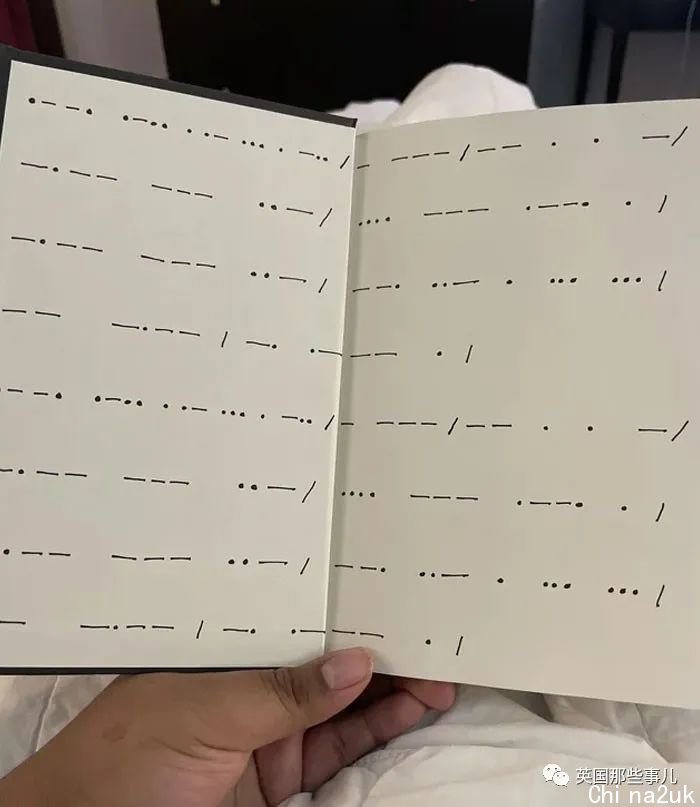 .--. .-.. . .- ... . -.. / - --- / -- . . - /
-.-- --- ..- / .... --- .--. . /
-.-- --- ..- / --. ..- . ... ... /
-- -.-- / -. .- -- . /
--. .-.. . .- ... . -.. / - --- / -- . . - /
-.-- --- ..- / .... --- .--. . /
.-- --- ..- / --. ..- . ... ... /
- -.-- / -. .- -- . /
英国那些事儿
Chi na2uk